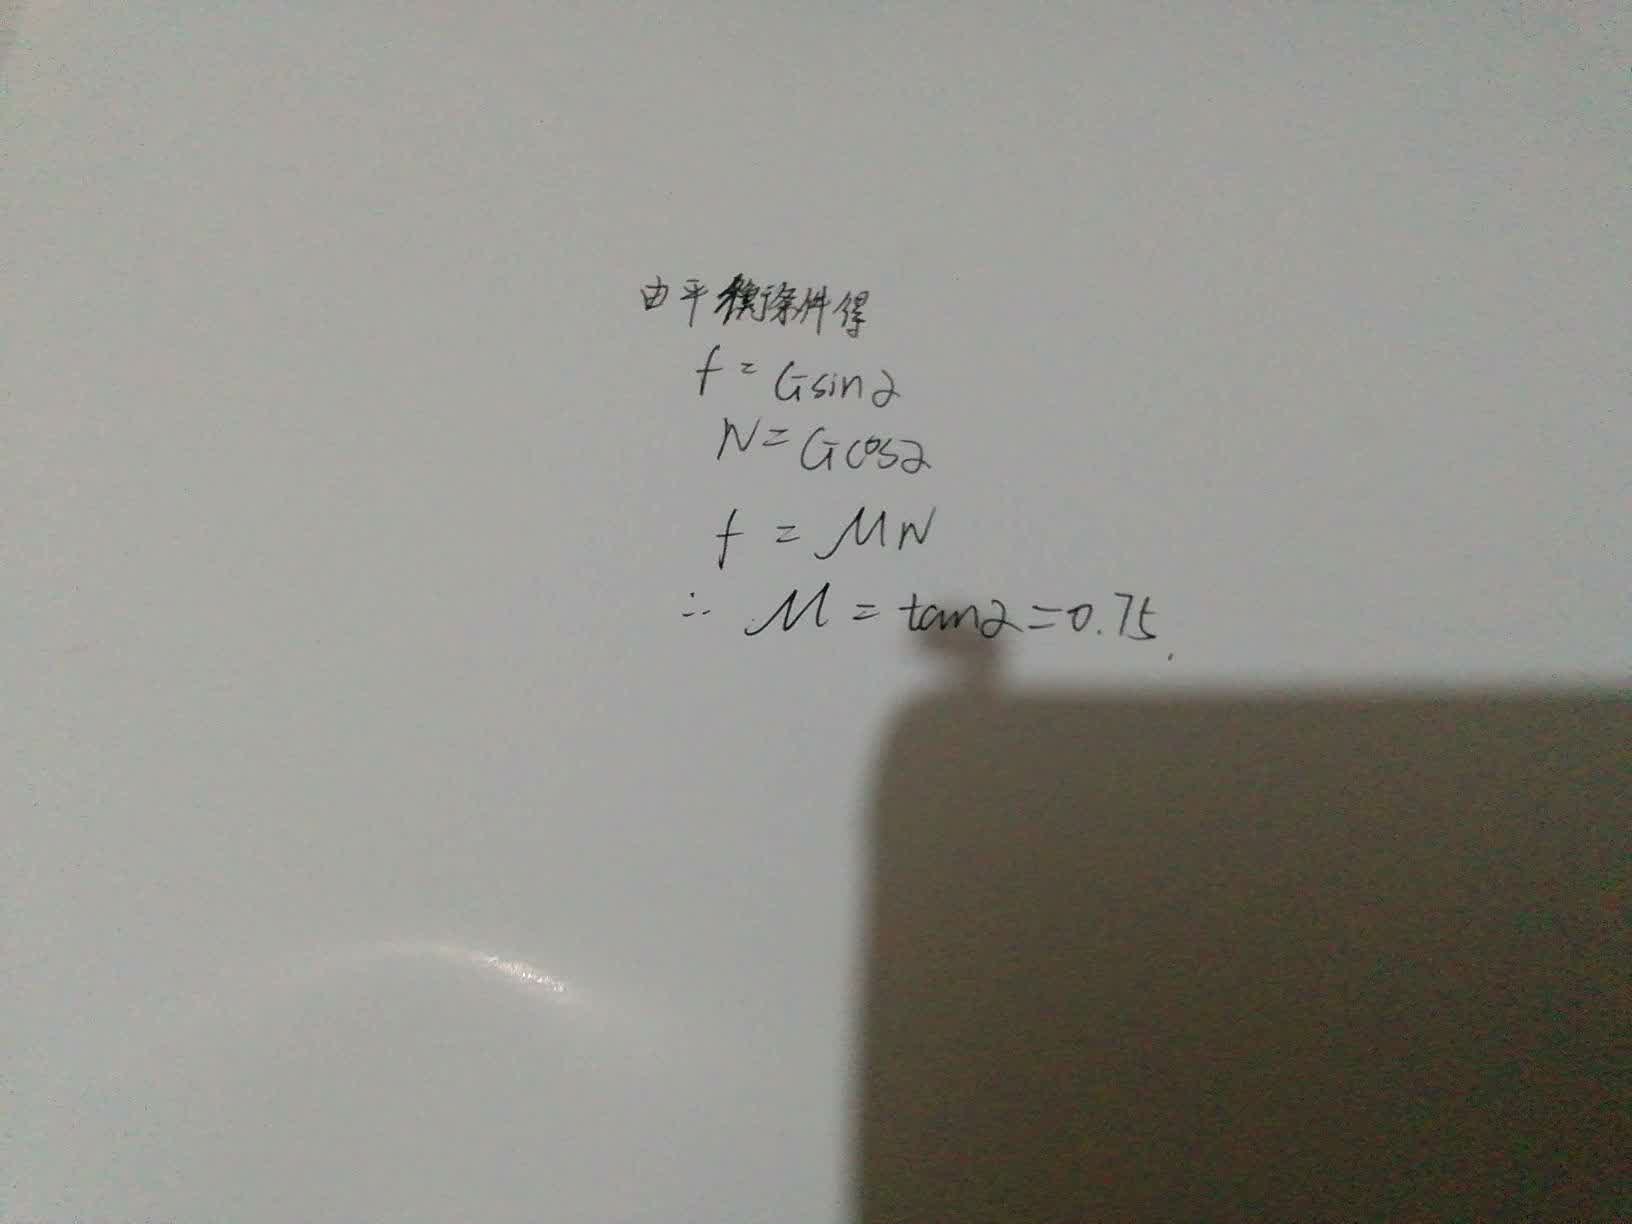 由平衡条件得
f = Gsinα
N = Gcosα
f = μN
∴ μ = tanα = 0.75.